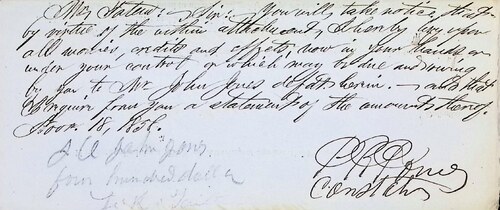 Mr. Tatum: Sir: You will take notice, that
by virtue of the within attachment, I hereby levy upon
all monies, credits and effects, now in your hands or
under your control, or which may be due and owing
by you to Mr John Jones defdt herein. — and that
I require from you a statement of the amount thereof.
Nov. 18, 185
four hundred dolla
Constable